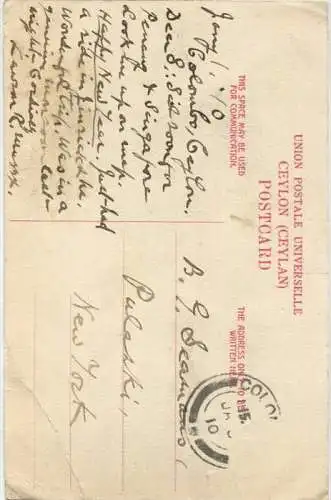 UNION POSTALE UNIVERSELLE
CEYLON (CEYLAN)
POSTCARD
THIS SPACE MAY BE USED
FOR COMMUNICATION.
THE ADDRESS ONLY TO BE
WRITTEN HERE
Jany 1. '10
Colombo, Ceylon.
Dear S: Set soon for
Penang & Singapore
Look me up on map.
Happy New Year Just had
a ride in Jinricksha.
Wonderful City. Was in a
genuine last
night Cordially
B. G. Seamans,
Pulaski,
New York
COLO
JA
10